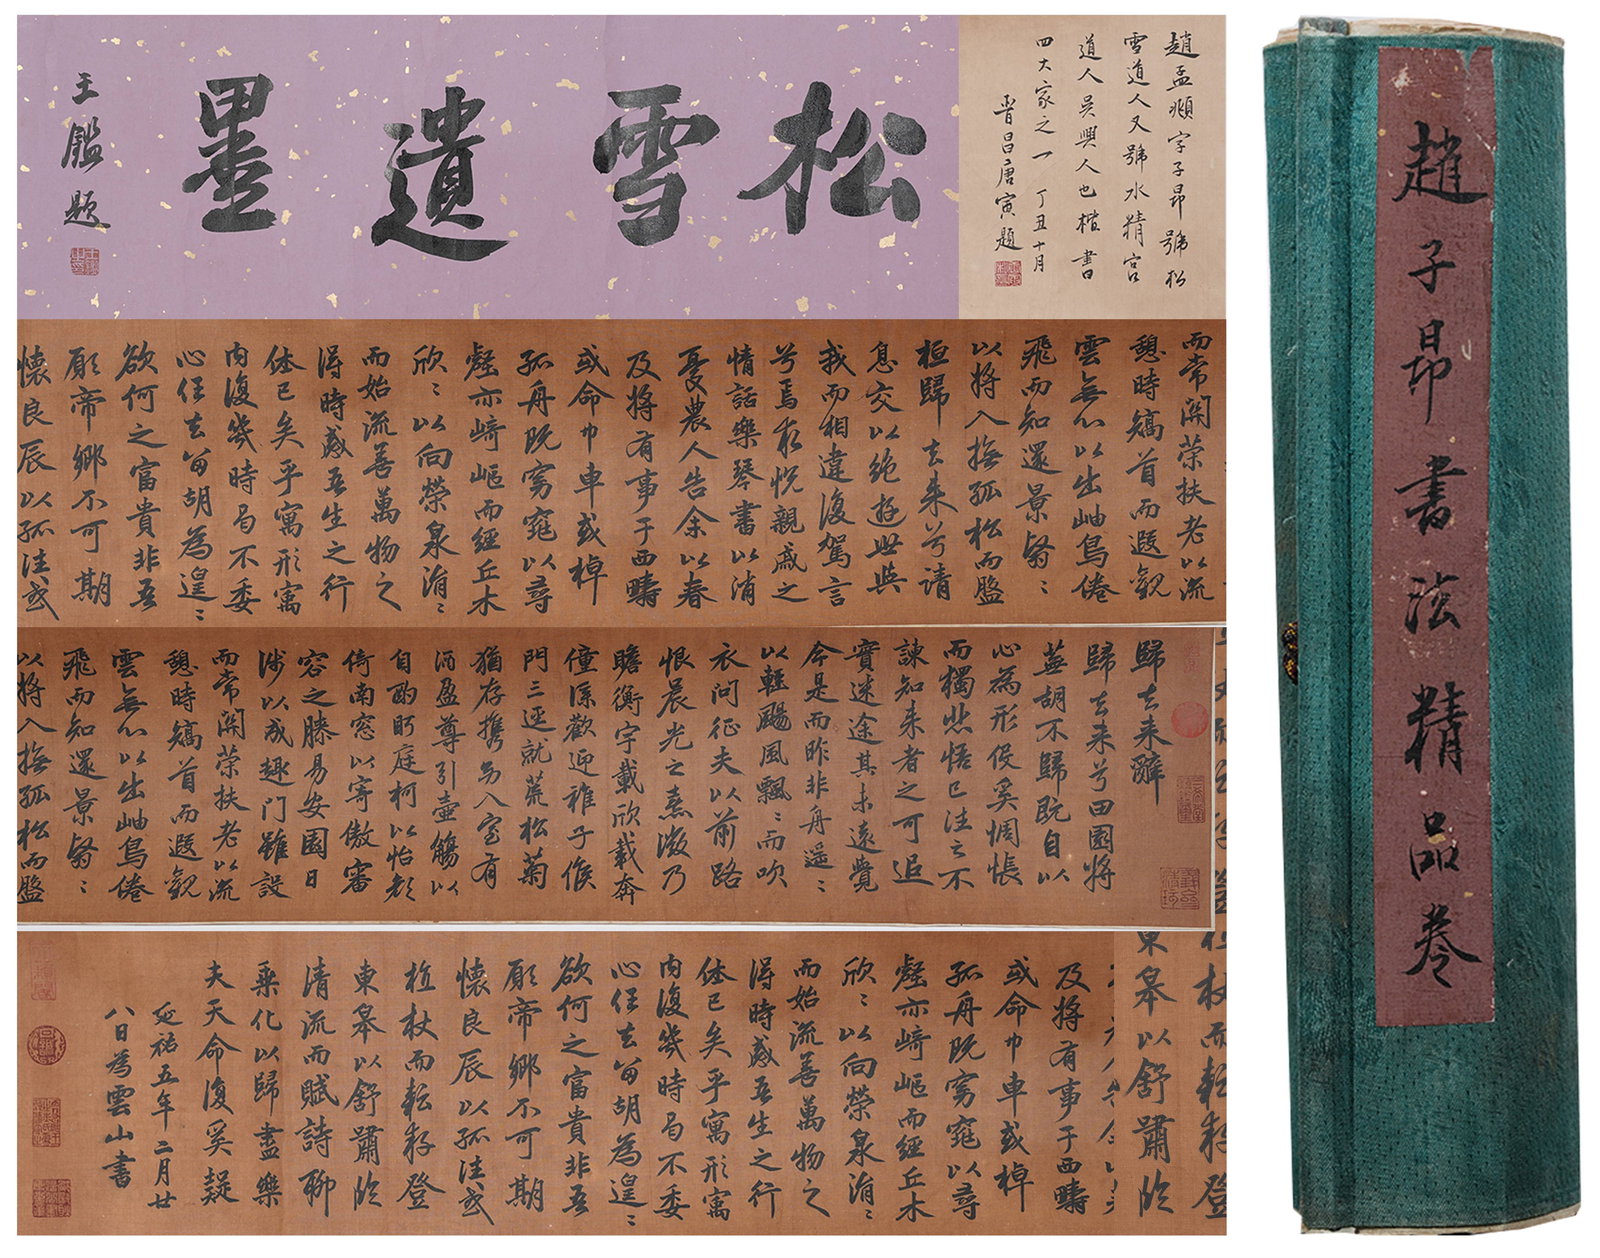 松雪遺墨
王鑑題
趙孟頫字子昂號松
雪道人又號水精宮
道人吳興人也楷書
四大家之一 丁丑十月
晉昌唐寅題
而常關榮扶老以流
憩時矯首而遐觀
雲無心以出岫鳥倦
飛而知還景翳〻
以將入撫孤松而盤
桓歸去来兮請
息交以絕遊世與
我而相違復駕言
兮焉求悅親戚之
情話樂琴書以消
憂農人告余以春
及將有事于西疇
或命巾車或棹
孤舟既窈窕以尋
壑亦崎嶇而經丘木
欣〻以向榮泉涓〻
而始流善萬物之
得時感吾生之行
休已矣乎寓形寓
内復幾時曷不委
心任去留胡為遑〻
欲何之富貴非吾
願帝鄉不可期
懷良辰以孤往或
歸去来辭
歸去来兮田園將
蕪胡不歸既自以
心為形役奚惆悵
而獨悲悟已往之不
諫知来者之可追
實迷途其未遠覺
今是而昨非舟遥〻
以輕颺風飄〻而吹
衣問征夫以前路
恨晨光之熹微乃
瞻衡宇載欣載奔
僮僕歡迎稚子候
門三逕就荒松菊
猶存攜幼入室有
酒盈尊引壺觴以
自酌眄庭柯以怡顏
倚南窓以寄傲審
容之膝易安園日
涉以成趣门雖設
而常關榮扶老以流
憩時矯首而遐觀
雲無心以出岫鳥倦
飛而知還景翳〻
以將入撫孤松而盤
東皋以舒嘯臨
及將有事于西疇
或命巾車或棹
孤舟既窈窕以尋
壑亦崎嶇而經丘木
欣〻以向榮泉涓〻
而始流善萬物之
得時感吾生之行
休已矣乎寓形寓
内復幾時曷不委
心任去留胡為遑〻
欲何之富貴非吾
願帝鄉不可期
懷良辰以孤往或
植杖而耘耔登
東皋以舒嘯臨
清流而賦詩聊
乘化以歸盡樂
夫天命復奚疑
延祐五年二月廿
八日為雲山書
趙子昂書法精品卷